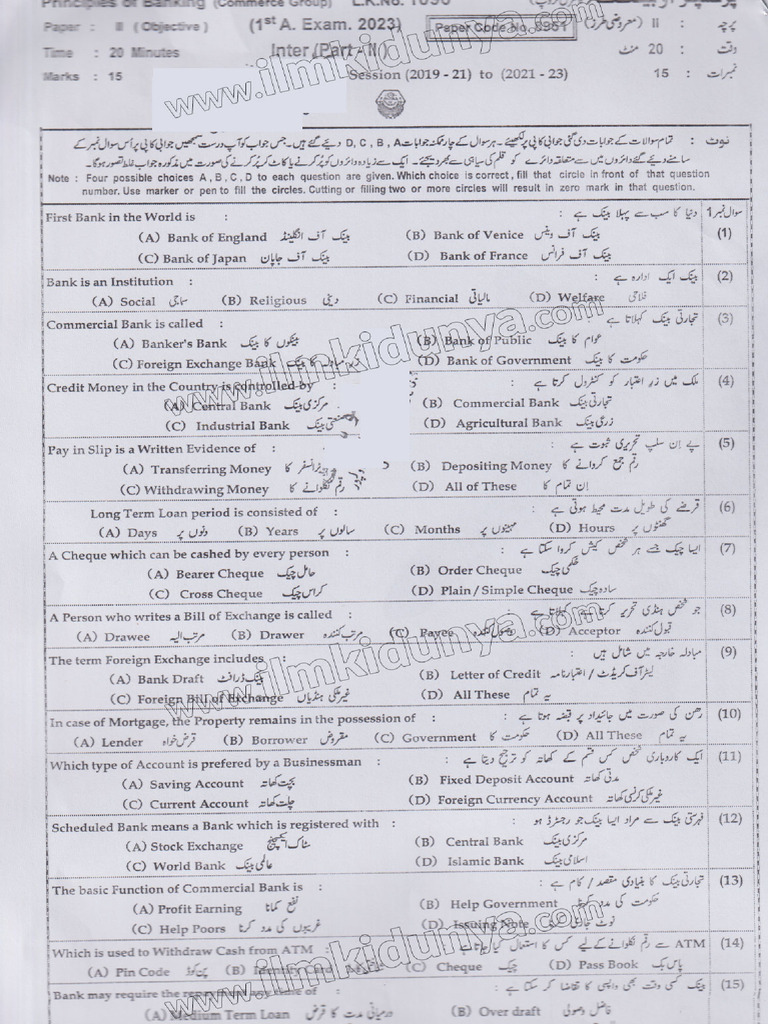 Principles of Banking (Commerce Group)
Paper : II (Objective) (1st A. Exam. 2023) Paper Code No. پرچہ : II (معروضی طرز)
Time : 20 Minutes Inter (Part - II) وقت : 20 منٹ
Marks : 15 Session (2019 - 21) to (2021 - 23) نمبرات : 15
www.ilmkidunya.com
Note : Four possible choices A, B, C, D to each question are given. Which choice is correct, fill that circle in front of that question
number. Use marker or pen to fill the circles. Cutting or filling two or more circles will result in zero mark in that question.
First Bank in the World is : دنیا کا سب سے پہلا بینک ہے : سوال نمبر 1
(A) Bank of England بینک آف انگلینڈ (B) Bank of Venice بینک آف وینس (1)
(C) Bank of Japan بینک آف جاپان (D) Bank of France بینک آف فرانس
Bank is an Institution : بینک ایک ادارہ ہے : (2)
(A) Social سماجی (B) Religious دینی (C) Financial مالیاتی (D) Welfare فلاحی
Commercial Bank is called : تجارتی بینک کہلاتا ہے : (3)
(A) Banker's Bank بینکوں کا بینک (B) Bank of Public عوام کا بینک
(C) Foreign Exchange Bank (D) Bank of Government حکومت کا بینک
www.ilmkidunya.com
Credit Money in the Country is controlled by : ملک میں زر اعتبار کو کنٹرول کرتا ہے : (4)
(A) Central Bank مرکزی بینک (B) Commercial Bank تجارتی بینک
(C) Industrial Bank صنعتی بینک (D) Agricultural Bank زرعی بینک
Pay in Slip is a Written Evidence of : پے ان سلپ تحریری ثبوت ہے : (5)
(A) Transferring Money (B) Depositing Money رقم جمع کروانے کا
(C) Withdrawing Money رقم نکلوانے کا (D) All of These ان تمام کا
Long Term Loan period is consisted of : قرضے کی طویل مدت محیط ہوتی ہے : (6)
(A) Days دنوں پر (B) Years سالوں پر (C) Months مہینوں پر (D) Hours گھنٹوں پر
A Cheque which can be cashed by every person : ایسا چیک جسے ہر شخص کیش کروا سکتا ہے : (7)
(A) Bearer Cheque حامل چیک (B) Order Cheque حکمی چیک
(C) Cross Cheque کراس چیک (D) Plain / Simple Cheque سادہ چیک
A Person who writes a Bill of Exchange is called : جو شخص ہنڈی تحریر کرتا ہے کہلاتا ہے : (8)
(A) Drawee مرتب الیہ (B) Drawer مرتب کنندہ (C) Payee وصول کنندہ (D) Acceptor قبول کنندہ
www.ilmkidunya.com
The term Foreign Exchange includes : مبادلہ خارجہ میں شامل ہیں : (9)
(A) Bank Draft بینک ڈرافٹ (B) Letter of Credit لیٹر آف کریڈٹ / اعتبار نامہ
(C) Foreign Bill of Exchange غیر ملکی ہنڈیاں (D) All These یہ تمام
In case of Mortgage, the Property remains in the possession of : رہن کی صورت میں جائیداد پر قبضہ ہوتا ہے : (10)
(A) Lender قرض خواہ (B) Borrower مقروض (C) Government حکومت کا (D) All These یہ تمام
Which type of Account is prefered by a Businessman : ایک کاروباری شخص کس قسم کے کھاتہ کو ترجیح دیتا ہے : (11)
(A) Saving Account بچت کھاتہ (B) Fixed Deposit Account مدتی کھاتہ
(C) Current Account چلت کھاتہ (D) Foreign Currency Account غیر ملکی کرنسی کھاتہ
Scheduled Bank means a Bank which is registered with : فہرستی بینک سے مراد ایسا بینک جو رجسٹرڈ ہو : (12)
(A) Stock Exchange سٹاک ایکسچینج (B) Central Bank مرکزی بینک
(C) World Bank عالمی بینک (D) Islamic Bank اسلامی بینک
The basic Function of Commercial Bank is : تجارتی بینک کا بنیادی مقصد / کام ہے : (13)
(A) Profit Earning نفع کمانا (B) Help Government حکومت کی مدد
(C) Help Poors غریبوں کی مدد کرنا (D) Issuing Note نوٹ جاری
www.ilmkidunya.com
Which is used to Withdraw Cash from ATM : ATM سے رقم نکلوانے کے لیے کس کا استعمال کیا جاتا ہے : (14)
(A) Pin Code پن کوڈ (B) Identity Card (C) Cheque چیک (D) Pass Book پاس بک
Bank may require the repayment any time of : بینک کسی وقت بھی واپسی کا تقاضا کر سکتا ہے : (15)
(A) Medium Term Loan درمیانی مدت کا قرض (B) Over draft فاضل وصولی